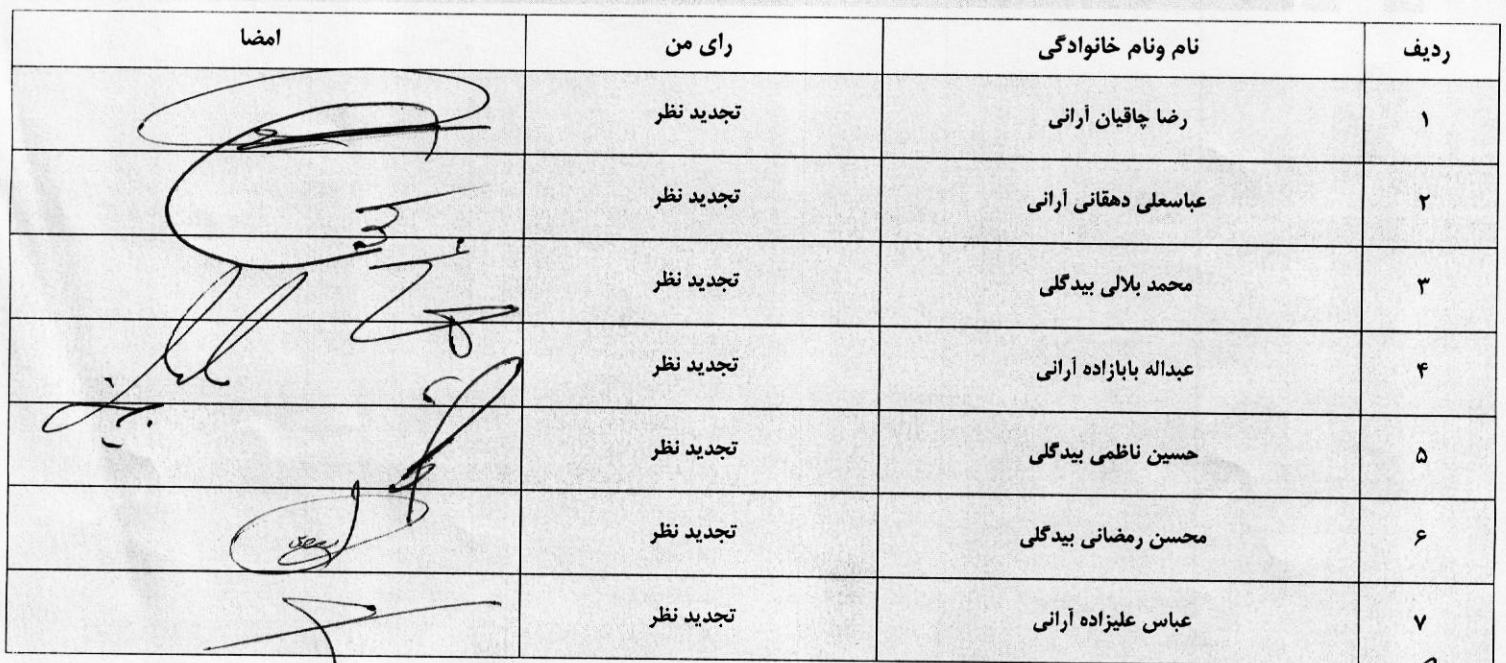 ردیف نام ونام خانوادگی رای من امضا
۱ رضا چاقیان آرانی تجدید نظر
۲ عباسعلی دهقانی آرانی تجدید نظر
۳ محمد بلالی بیدگلی تجدید نظر
۴ عبداله بابازاده آرانی تجدید نظر
۵ حسین ناظمی بیدگلی تجدید نظر
۶ محسن رمضانی بیدگلی تجدید نظر
۷ عباس علیزاده آرانی تجدید نظر